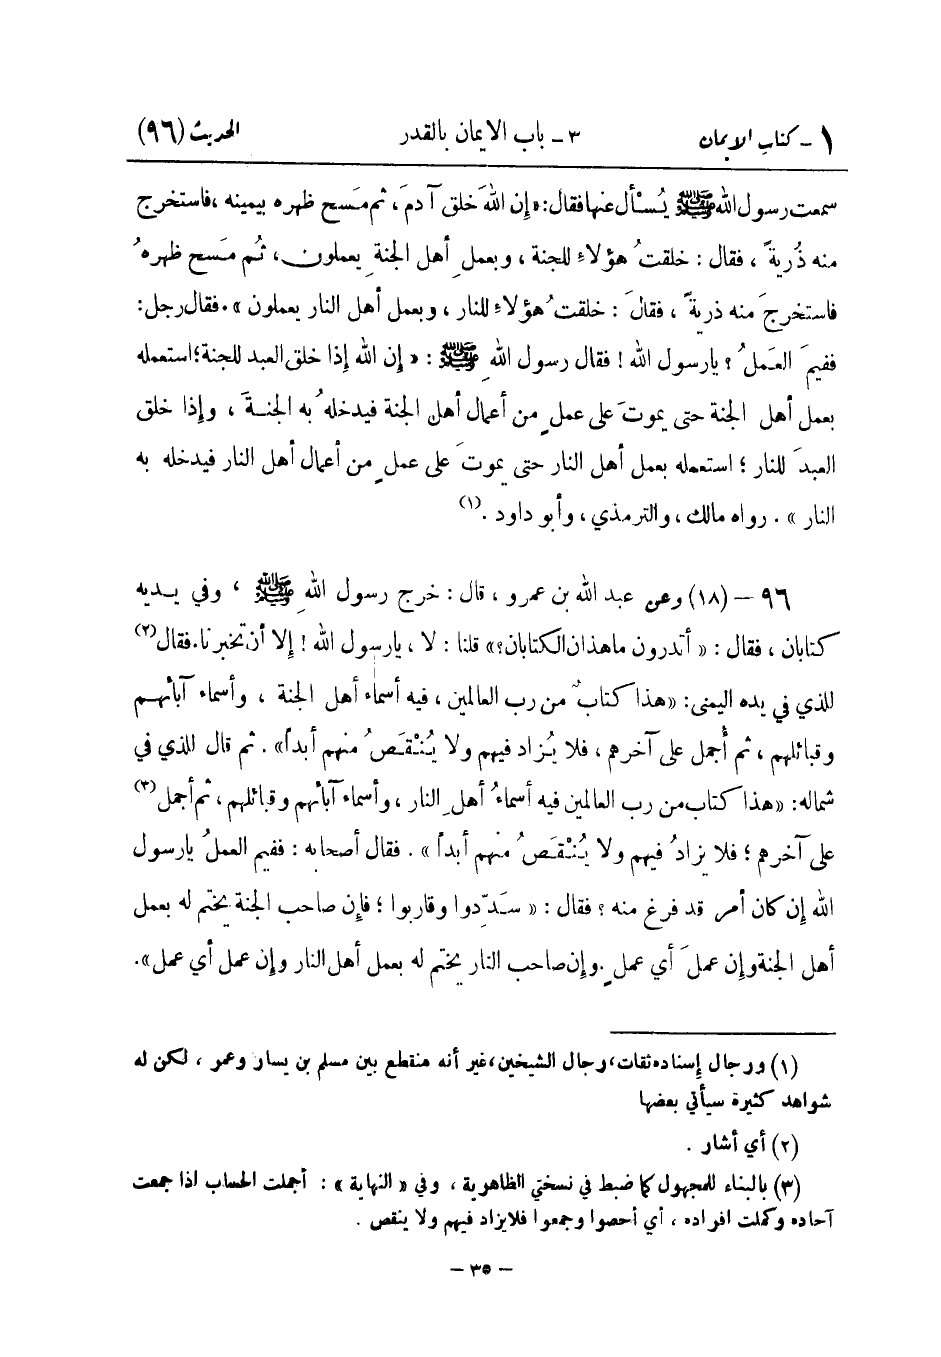 ١ - كتاب الإيمان ٣ - باب الايمان بالقدر الحديث (٩٦)
سمعت رسول الله ﷺ يُسْأل عنها فقال: «إن اللهَ خلق آدمَ، ثم مَسح ظهره بيمينه، فاستخرج
منه ذُريةً، فقال: خلقتُ هؤلاءِ للجنة، وبعملِ أهل الجنةِ يعملون، ثُم مَسح ظهرهُ
فاستخرجَ منه ذريةً، فقالَ: خلقتُ هؤلاءِ للنار، وبعمل أهل النار يعملون». فقال رجل:
ففيمَ العَملُ؟ يارسول الله! فقال رسول اللهِ ﷺ: «إن الله إذا خلق العبد للجنة؛ استعمله
بعمل أهل الجنة حتى يموتَ على عملٍ من أعمال أهل الجنة فيدخلهُ به الجنةَ، وإذا خلق
العبدَ للنار؛ استعمله بعمل أهل النار حتى يموتَ على عملٍ من أعمال أهل النار فيدخله به
النار». رواه مالك، والترمذي، وأبو داود.(١)
٩٦ - (١٨) وعن عبد الله بن عمرو، قال: خرج رسول اللهِ ﷺ، وفي يديه
كتابان، فقال: «أتدرون ماهذان الكتابان؟» قلنا: لا، يارسول الله! إلا أن تخبرنا. فقال(٢)
للذي في يده اليمنى: «هذا كتابٌ من رب العالمين، فيه أسماء أهل الجنة، وأسماء آبائهم
وقبائلهم، ثم أُجمل على آخرهم، فلا يُزاد فيهم ولا يُنْقَصُ منهم أبداً». ثم قال للذي في
شماله: «هذا كتاب من رب العالمين فيه أسماءُ أهلِ النار، وأسماء آبائهم وقبائلهم، ثم أجمل(٣)
على آخرهم؛ فلا يزادُ فيهم ولا يُنْقَصُ منهم أبداً». فقال أصحابه: ففيم العملُ يارسول
الله إن كان أمر قد فرغ منه؟ فقال: «سَدِّدوا وقاربوا؛ فإن صاحب الجنة يختم له بعمل
أهل الجنة وإن عملَ أي عملٍ. وإن صاحب النار يختم له بعمل أهل النار وإن عمل أي عمل».
(١) ورجال إسناده ثقات، رجال الشيخين، غير أنه منقطع بين مسلم بن يسار وعمر، لكن له
شواهد كثيرة سيأتي بعضها
(٢) أي أشار.
(٣) بالبناء للمجهول كما ضبط في نسختي الظاهرية، وفي «النهاية»: أجملت الحساب اذا جمعت
آحاده وكملت افراده، أي أحصوا وجمعوا فلا يزاد فيهم ولا ينقص.
- ٣٥ -